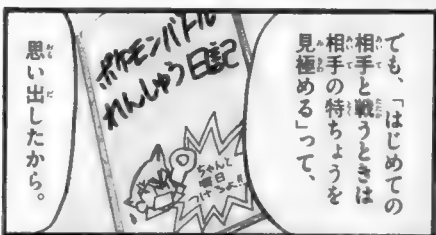 でも、「はじめての
相手と戦うときは
相手の特ちょうを
見極める」って、
ポケモンバトル
れんしゅう日記
ちゃんと
毎日
つけるよ!!
思い出したから。